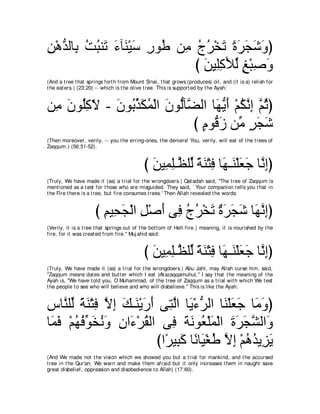 (وَشَجَرَةً تَخْرُجُ مِن طُورِ سَيْنَآءَ تَنبُتُ بِالدُّهْنِ
وَصِبْغٍ لِّلأَكِلِيِنَ )
(And a tree that springs forth from Mount Sinai, that grows (produces) oil, and (it is a) relish for
the eaters.) (23:20) -- which is the olive tree. This is supported by the Ayah:
(ثُمَّ إِنَّكُمْ أَيُّهَا الضَّآلُّونَ الْمُكَذِّبُونَ - لاّكِلُونَ مِن
شَجَرٍ مِّن زَقُّومٍ )
(Then moreover, verily, -- you the erring-ones, the deniers! You, verily, will eat of the trees of
Zaqqum.) (56:51-52).
(إِنَّا جَعَلْنَـهَا فِتْنَةً لِّلظَّـلِمِينَ )
(Truly, We have made it (as) a trial for the wrongdoers.) Qatadah said, "The tree of Zaqqum is
mentioned as a test for those who are misguided. They said, `Your companion tells you that in
the Fire there is a tree, but fire consumes trees.' Then Allah revealed the words:
(إِنَّهَا شَجَرَةٌ تَخْرُجُ فِى أَصْلِ الْجَحِيمِ )
(Verily, it is a tree that springs out of the bottom of Hell-fire.) meaning, it is nourished by the
fire, for it was created from fire." Mujahid said:
(إِنَّا جَعَلْنَـهَا فِتْنَةً لِّلظَّـلِمِينَ )
(Truly, We have made it (as) a trial for the wrongdoers.) Abu Jahl, may Allah curse him, said,
"Zaqqum means dates and butter which I eat (Atazaqqamuhu)." I say that the meaning of the
Ayah is, "We have told you, O Muhammad, of the tree of Zaqqum as a trial with which We test
the people to see who will believe and who will disbelieve." This is like the Ayah:
(وَمَا جَعَلْنَا الرُّءْيَا الَّتِى أَرَيْنَـكَ إِلاَّ فِتْنَةً لِّلنَّاسِ
وَالشَّجَرَةَ الْمَلْعُونَةَ فِى الْقُرْءَانِ وَنُخَوِّفُهُمْ فَمَا
يَزِيدُهُمْ إِلاَّ طُغْيَانًا كَبِيرًا)
(And We made not the vision which we showed you but a trial for mankind, and the accursed
tree in the Qur'an. We warn and make them afraid but it only increases them in naught save
great disbelief, oppression and disobedience to Allah) (17:60).